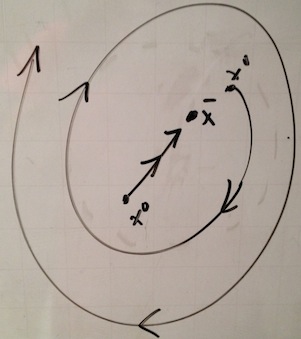 x⁰
x̄
x⁰